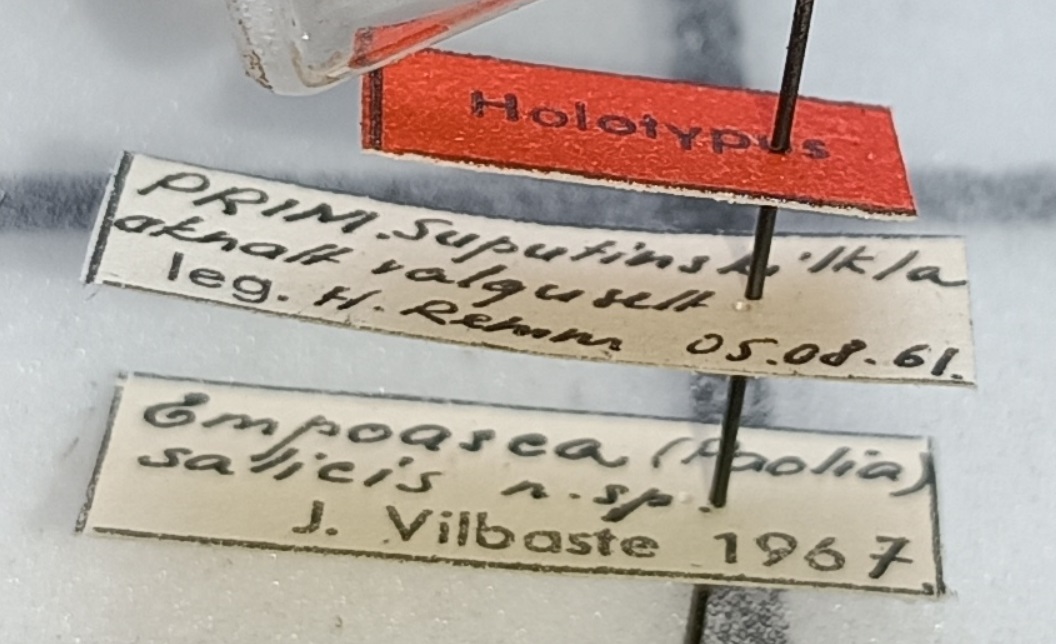 Holotypus
PRIM. Suputinski lk/a
aknalt valguselt
leg. H. Remm 05.08.61.
Empoasca (Paolia)
salicis n.sp.
J. Vilbaste 1967